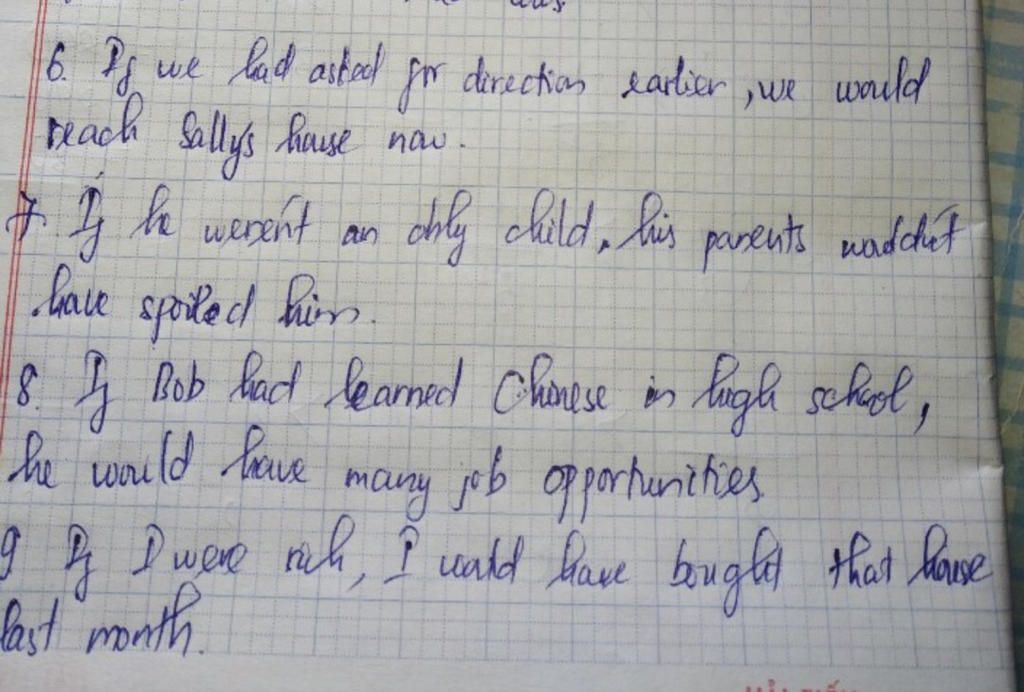 6. If we had asked for direction earlier, we would
reach Sally's house now.
7. If he weren't an only child, his parents wouldn't
have spoiled him.
8. If Bob had learned Chinese in high school,
he would have many job opportunities
9 If I were rich, I would have bought that house
last month.